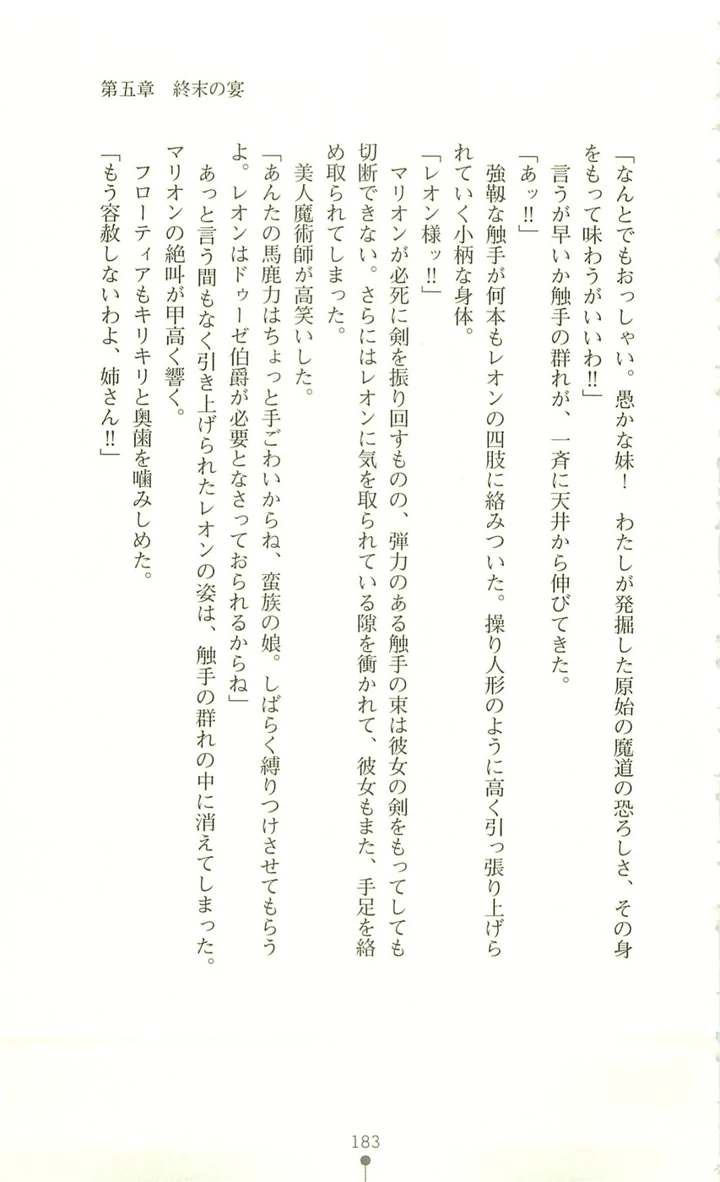 第五章　終末の宴
「なんとでもおっしゃい。愚かな妹！　わたしが発掘した原始の魔道の恐ろしさ、その身
をもって味わうがいいわ‼」
言うが早いか触手の群れが、一斉に天井から伸びてきた。
「あッ‼」
強靱な触手が何本もレオンの四肢に絡みついた。操り人形のように高く引っ張り上げら
れていく小柄な身体。
「レオン様ッ‼」
マリオンが必死に剣を振り回すものの、弾力のある触手の束は彼女の剣をもってしても
切断できない。さらにはレオンに気を取られている隙を衝かれて、彼女もまた、手足を絡
め取られてしまった。
美人魔術師が高笑いした。
「あんたの馬鹿力はちょっと手ごわいからね、蛮族の娘。しばらく縛りつけさせてもらう
よ。レオンはドゥーゼ伯爵が必要となさっておられるからね」
あっと言う間もなく引き上げられたレオンの姿は、触手の群れの中に消えてしまった。
マリオンの絶叫が甲高く響く。
フローティアもキリキリと奥歯を噛みしめた。
「もう容赦しないわよ、姉さん‼」
183